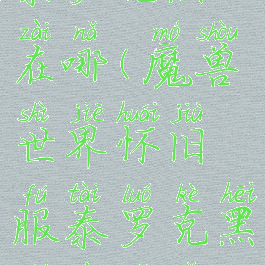 zài nǎ mó shòu
在哪(魔兽
shì jiè huái jiù
世界怀旧
fú tài luó kè hēi
服泰罗克黑